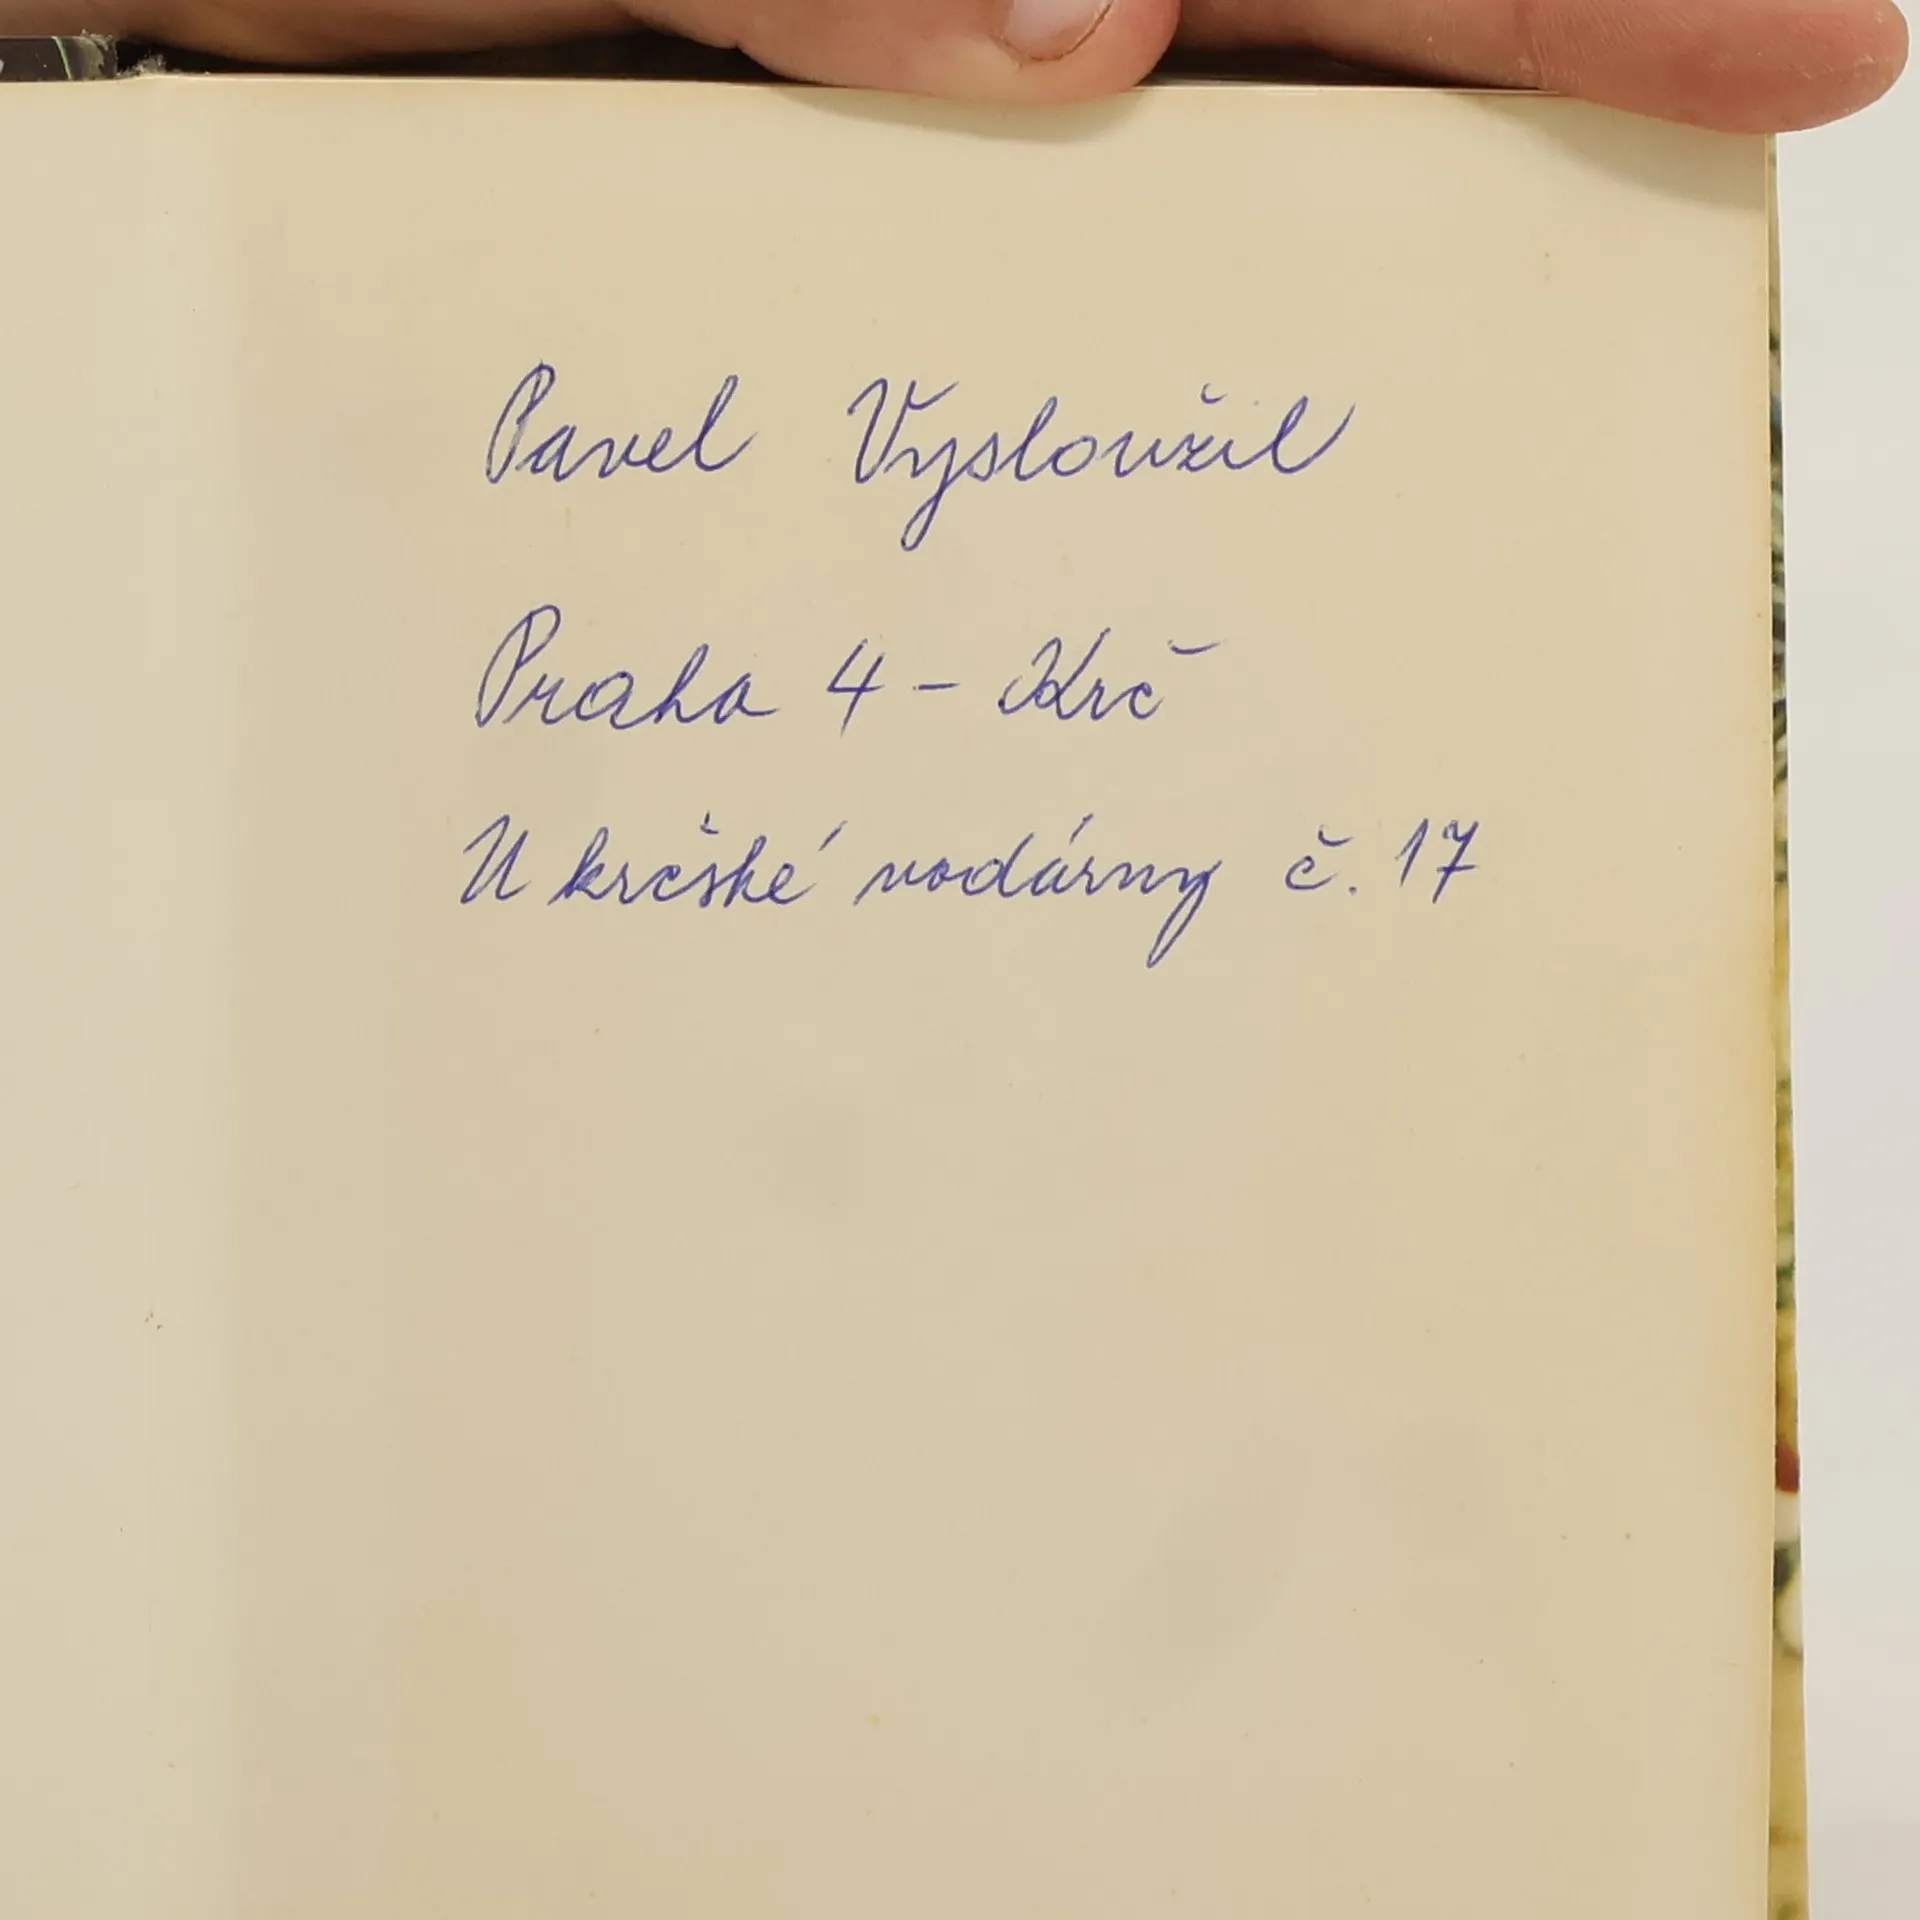 Pavel Vysloužil
Praha 4 - Krč
U krčské vodárny č. 17